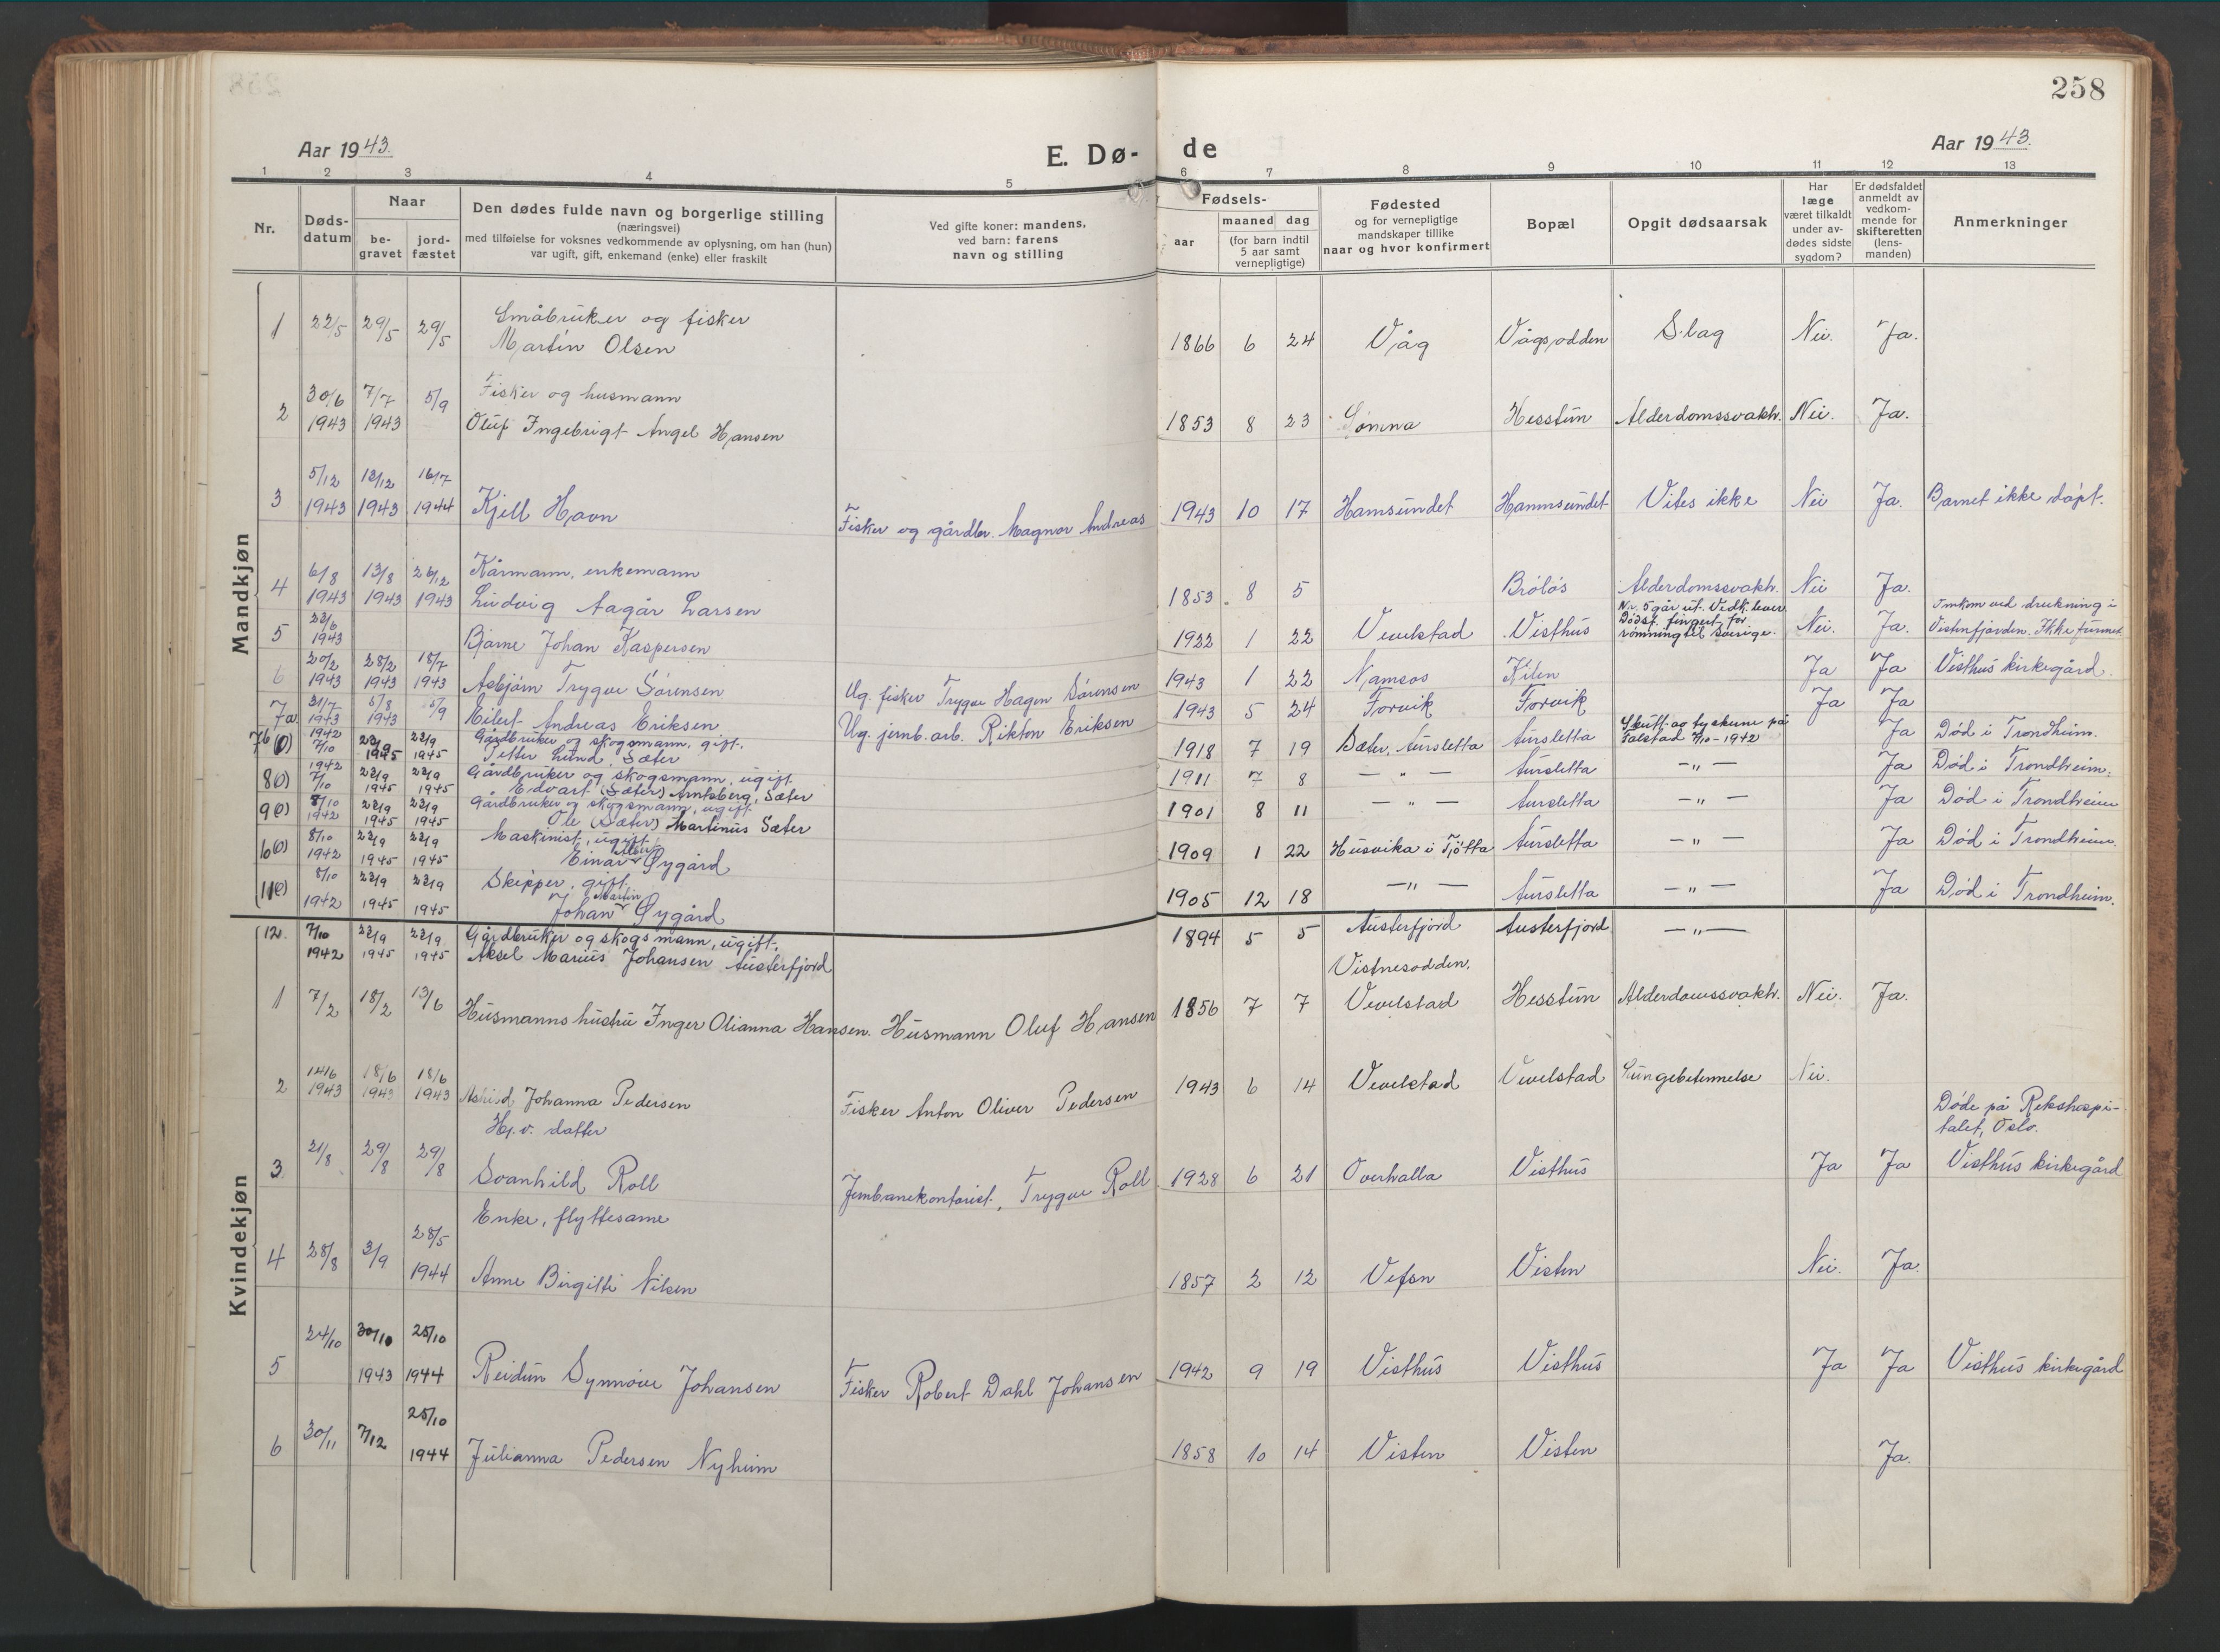 258
Aar 1943.
E. Dø-
de
Aar 1943.
1 2 3 4 5 6 7 8 9 10 11 12 13
Nr.
Døds-
datum
Naar
be-
gravet
jord-
fæstet
Den dødes fulde navn og borgerlige stilling
(næringsvei)
med tilføielse for voksnes vedkommende av oplysning, om han (hun)
var ugift, gift, enkemand (enke) eller fraskilt
Ved gifte koner: mandens,
ved barn: farens
navn og stilling
Fødsels-
aar
maaned dag
(for barn indtil
5 aar samt
vernepligtige)
Fødested
og for vernepligtige
mandskaper tillike
naar og hvor konfirmert
Bopæl
Opgit dødsaarsak
Har
læge
været tilkaldt
under av-
dødes sidste
sygdom?
Er dødsfaldet
anmeldt av
vedkom-
mende for
skifteretten
(lens-
manden)
Anmerkninger
Mandkjøn
1 22/5 29/5 29/5 Småbruker og fisker
Martin Olsen 1866 6 24 Våg Vågsodden Slag Nei. Ja.
2 30/6 1943 7/7 1943 5/9 Fisker og husmann
Oluf Ingebrigt Angel Hansen 1853 8 23 Sømna Hesstun Alderdomssvakh. Nei. Ja.
3 5/12 1943 12/12 1943 16/7 1944 Kjell Havn Fisker og gårdbr. Magnor Andreas 1943 10 17 Hamsundet Hamnsundet Vites ikke Nei Ja. Barnet ikke døpt.
4 6/8 1943 13/8 1943 26/12 1943 Kårmann, enkemann
Ludvig Aagår Larsen 1853 8 5 Brøløs Alderdomssvakh. Nei Ja.
5 22/6 1943 Bjarne Johan Kaspersen 1922 1 22 Vevelstad Visthus Nr. 5 går ut. Vedk. lever.
Dødsf. fingert for
rømning til Sverige. Nei. Ja. Omkom ved drukning i
Vistenfjorden. Ikke funnet
6 20/2 1943 28/2 1943 18/7 1943 Asbjørn Trygve Sørensen Ug. fisker Trygve Hagen Sørensen 1943 1 22 Namsos Kilen Ja Ja Visthus kirkegård.
7a 31/7 1943 5/8 1943 5/9 Eilert Andreas Eriksen Ug. jernb.arb. Rikton Eriksen 1943 5 24 Forvik Forvik Ja Ja
7b 1942 7/10 22/9 1945 22/9 1945 Gårdbruker og skogsmann, gift.
Petter Lund, Sæter 1918 7 19 Sæter, Aursletta Aursletta Skutt av tyskerne på
Falstad 7/10-1942 Ja Død i Trondheim.
8 1942 7/10 22/9 1945 22/9 1945 Gårdbruker og skogsmann, ugift.
Edvart (Sæter) Arntsberg, Sæter 1911 7 8 — " — Aursletta — " — Ja Død i Trondheim.
9 8/10 1942 22/9 1945 22/9 1945 Gårdbruker og skogsmann, ugift
Ole (Sæter) Martinus Sæter 1901 8 11 — " — Aursletta — " — Ja Død i Trondheim
10 8/10 1942 22/9 1945 22/9 1945 Maskinist, ugift.
Einar Øygård 1909 1 22 Husvika i Tjøtta Aursletta — " — Ja Død i Trondheim.
11 8/10 1942 22/9 1945 22/9 1945 Skipper, gift.
Johan Martin Øygård 1905 12 18 — " — Aursletta — " — Ja Død i Trondheim.
12. 7/10 1942 22/9 1945 22/9 1945 Gårdbruker og skogsmann, ugift.
Aksel Marius Johansen Austerfjord 1894 5 5 Austerfjord Austerfjord — " —
Kvindekjøn
1 7/2 18/2 13/6 Husmanns hustru Inger Olianna Hansen. Husmann Oluf Hansen 1856 7 7 Vistnesodden,
Vevelstad Hesstun Alderdomssvakh. Nei. Ja.
2 14/6 1943 18/6 1943 18/6 1943 Astrid Johanna Pedersen Fisker Anton Oliver Pedersen 1943 6 14 Vevelstad Vevelstad Lungebetennelse Nei.
3. 21/8 29/8 29/8 Hj.v. datter
Svanhild Roll Jernbanekontorist, Trygve Roll 1928 6 21 Overhalla Visthus Ja Ja Døde på Rikshospi-
talet, Oslo.
Visthus kirkegård
4 28/8 3/9 28/5 1944 Enke, flyttesame
Anne Birgitte Nilsen 1857 2 12 Vefsn Visten Nei. Ja.
5 24/10 30/10 1943 25/10 1944 Reidun Synnøve Johansen Fisker Robert Dahl Johansen 1942 9 19 Visthus Visthus Ja Ja Visthus kirkegård
6 30/11 7/12 25/10 1944 Julianna Pedersen Nyheim 1858 10 14 Visten Visten Ja.